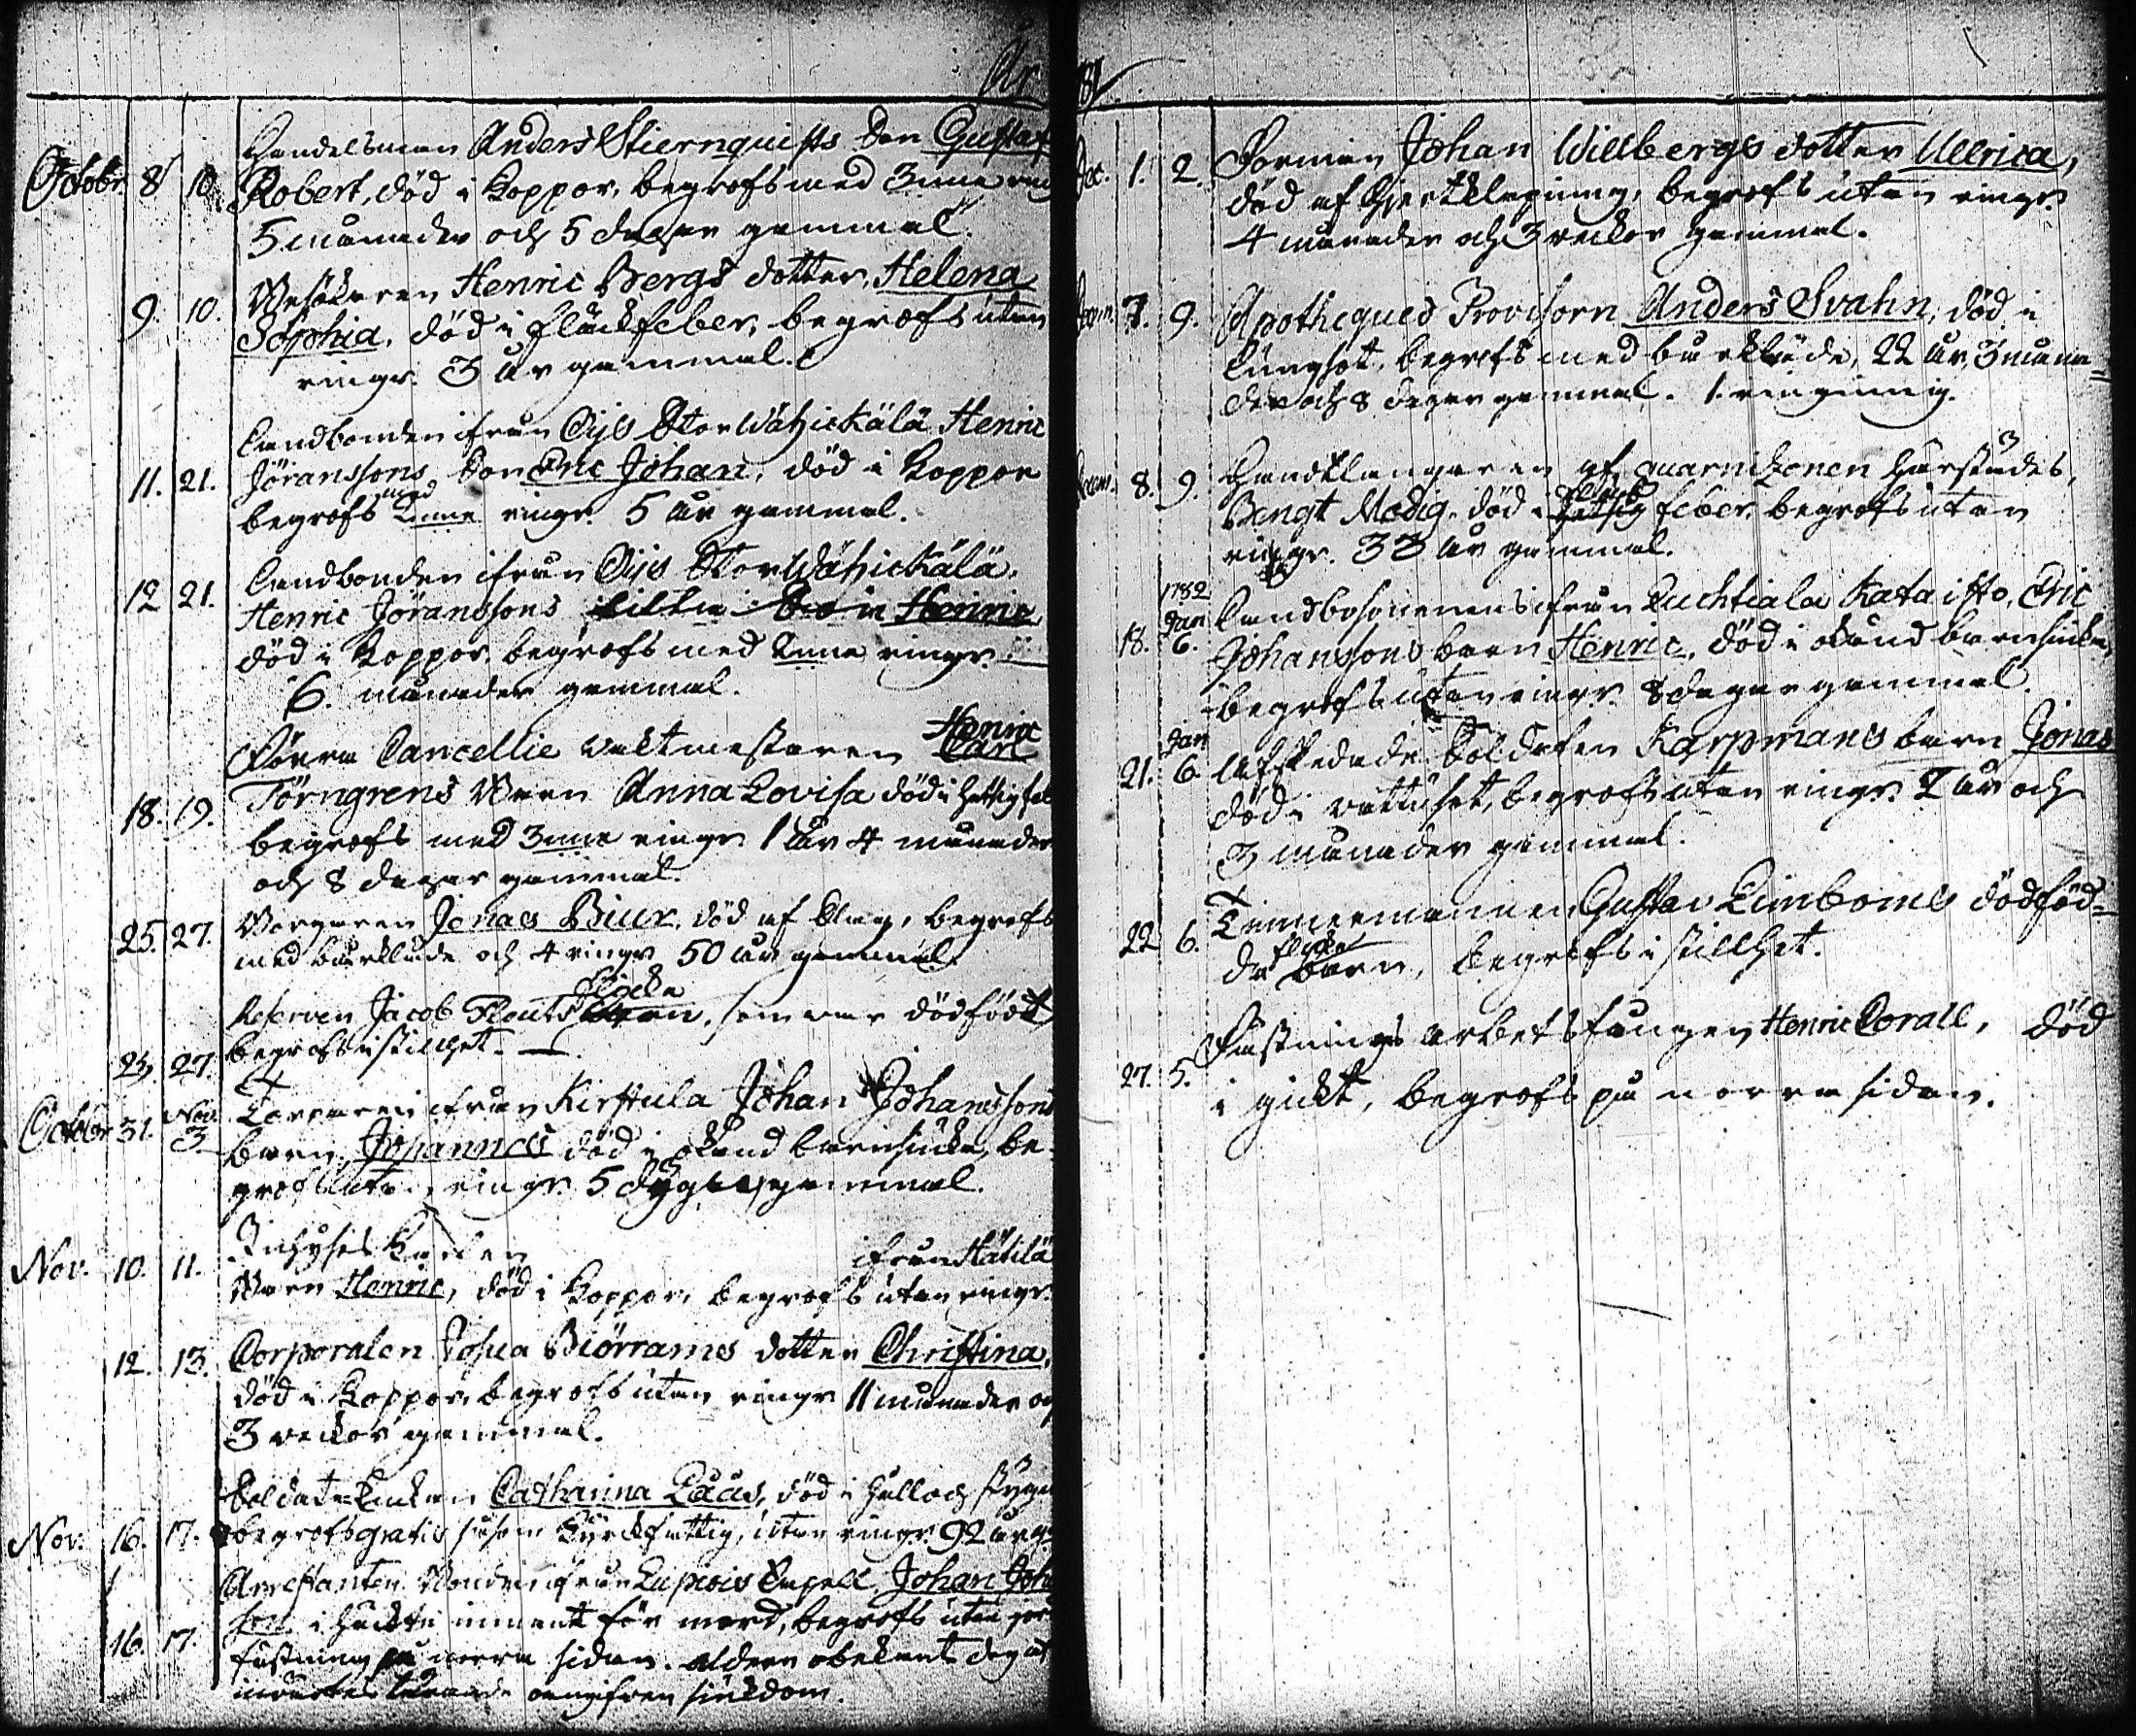 År
Octobr. 8 10. Handelsman Anders Stiernquists Son Gustaf
Robert, död i Koppor, begrofs med 3nne ring
5 månader och 5 dagar gammal.
9. 10. Besökaren Henric Bergs dotter, Helena
Sophia, död i fläckfeber, begrofs utan
ringn. 3 år gammal.
Landbonden ifrån Öijs StorWähickälä Henric
11. 21. Jöranssons Son Eric Johan, död i Koppor
begrofs med 2nne ringn. 5 år gammal.
12 21. Landbonden ifrån Öijs StorWähickälä,
Henric Jöranssons lilla Son Henric,
död i Koppor, begrofs med 2nne ringn.
6. månader gammal.
Förra Cancellie vaktmestaren Henric
Carl
18. 19. Törngrens Barn Anna Lovisa död i hettig feb
begrofs med 3nne ringn 1 år 4 månader
och 8 dagar gammal.
25. 27. Borgaren Jonas Biur, död af slag, begrofs
med bårkläde och 4 ringn 50 år gammal.
flicka
Reserven Jacob Flouts barn, som var dödfödt
25, 27. begrofs i stillhet.
Octobr 31. Nov. 3 Torparen ifrån Kirstula Johan Johanssons
barn Johannes död i okänd barnsiuka, be-
grofs utan ringn. 5 dygn gammal.
Nov. 10. 11. Inhyses Karlen ifrån Hätilä
Barn Henric, död i Koppor, begrofs utan ringn.
12. 13. Corporalen Josua Biörrams dotter Christina,
död i Koppor, begrofs utan ringn 11 månader och
3 veckor gammal.
Soldate Enkan Catharina, död i håll och styng
Nov. 16. 17. begrofs gratis såsom Kyrkfattig, utan ringn. 92 år g
Arrestanten Bonden ifrån Capell, Johan Joh
son i häckte intagit för mord, begrofs utan jord
16. 17. fästning på norra sidan. åldern obekant
siukdom.
81
Dec. 1. 2. Forman Johan Willbergs dotter Ullrica,
död af Hjertklapning, begrofs utan ringn
4 månader och 3 veckor gammal.
7. 9. Apotheques Provisorn Anders Svahn, död i
Lungsot, begrofs med bårkläde, 22 år, 3 måna-
der och 8 dagar gammal. 1. ringning.
8. 9. Handtlangaren af guarnizonen härstädes,
Bengt Modig, död i hetsig feber, begrofs utan
ringn. 33 år gammal.
1782
18. Jan 6. Landbosonens ifrån Luchtiala Kataisto, Eric
Johanssons barn Henric, död i okänd barnsiuka,
begrofs utan ringn. 8 dagar gammal.
21. Jan 6. Afskedade Soldaten Karpmans barn Jonas
död i vattusot, begrofs utan ringn. 2 år och
3 månader gammal.
22 6. Timmermannen Gustav Limboms dödföd-
flicka
da barn, begrofs i stillhet.
Fästnings arbets fången Henric Corall, död
27. 5. i gikt, begrofs på norra sidan.